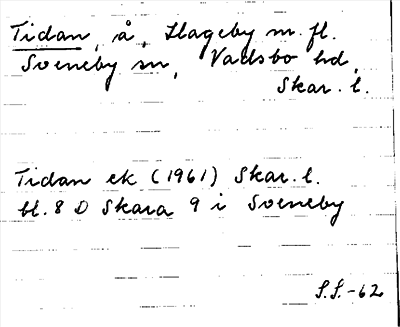 Tidan, å, Hageby m. fl.
Sveneby sn, Vadsbo hd,
Skar. l.
Tidan ek (1961) Skar. l.
bl. 8 D Skara 9 i Sveneby
S.S.-62